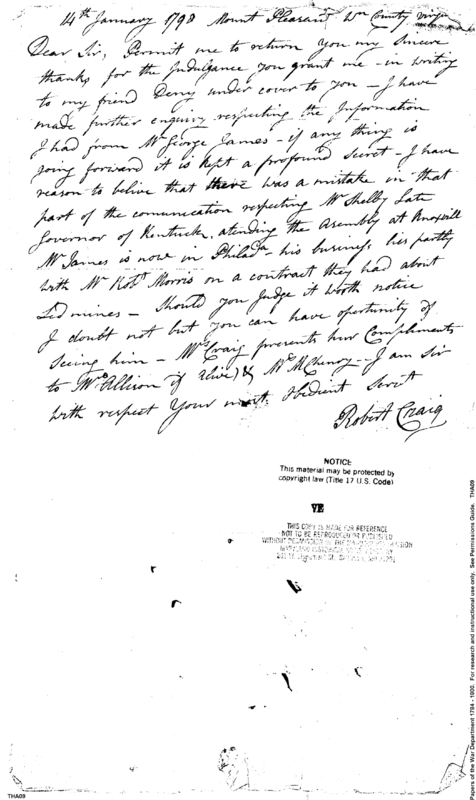 14th January 1798 Mount Pleasant Wn County Virga
Dear Sir, Permit me to return you my Sincere
thanks for the Indulgance you grant me - in writing
to my friend Deny under cover to you - I have
made further enquiry respecting the Information
I had from Mr George James - if any thing is
going forward it is kept a profound secret - I have
reason to belive that there was a mistake in that
part of the comunication respecting Mr Shelby Late
Governor of Kentuck, atending the Asembly at Knoxvill
Mr James is now in Philada - his buseness lies partly
with Mr Robt Morris on a contract they had about
Led mines - Should you Judge it worth notice
I doubt not but you can have opertunity of
seeing him - Mrs Craig presents hur Compliments
to Mrs Allison (if alive) & Mrs McHenry - I am Sir
with respect Your most obedient Servt
Robert Craig
NOTICE
This material may be protected by
copyright law (Title 17 U.S. Code)
THIS COPY IS MADE FOR REFERENCE
NOT TO BE REPRODUCED OR PUBLISHED
Papers of the War Department 1784 - 1800. For research and instructional use only. See Permissions Guide. THA09
THA09